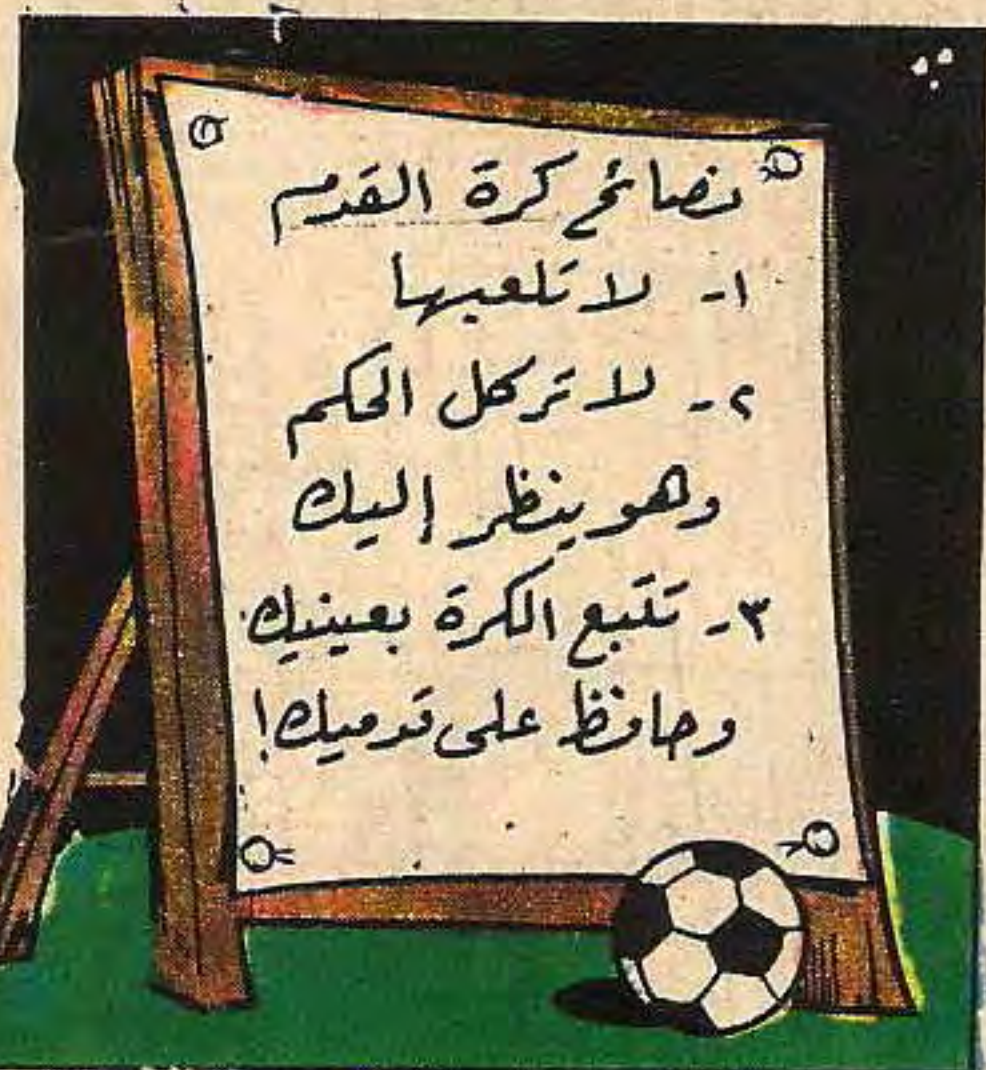 نصائح كرة القدم
١- لا تلعبها
٢- لا تركل الحكم
وهو ينظر إليك
٣- تتبع الكرة بعينيك
وحافظ على قدميك!